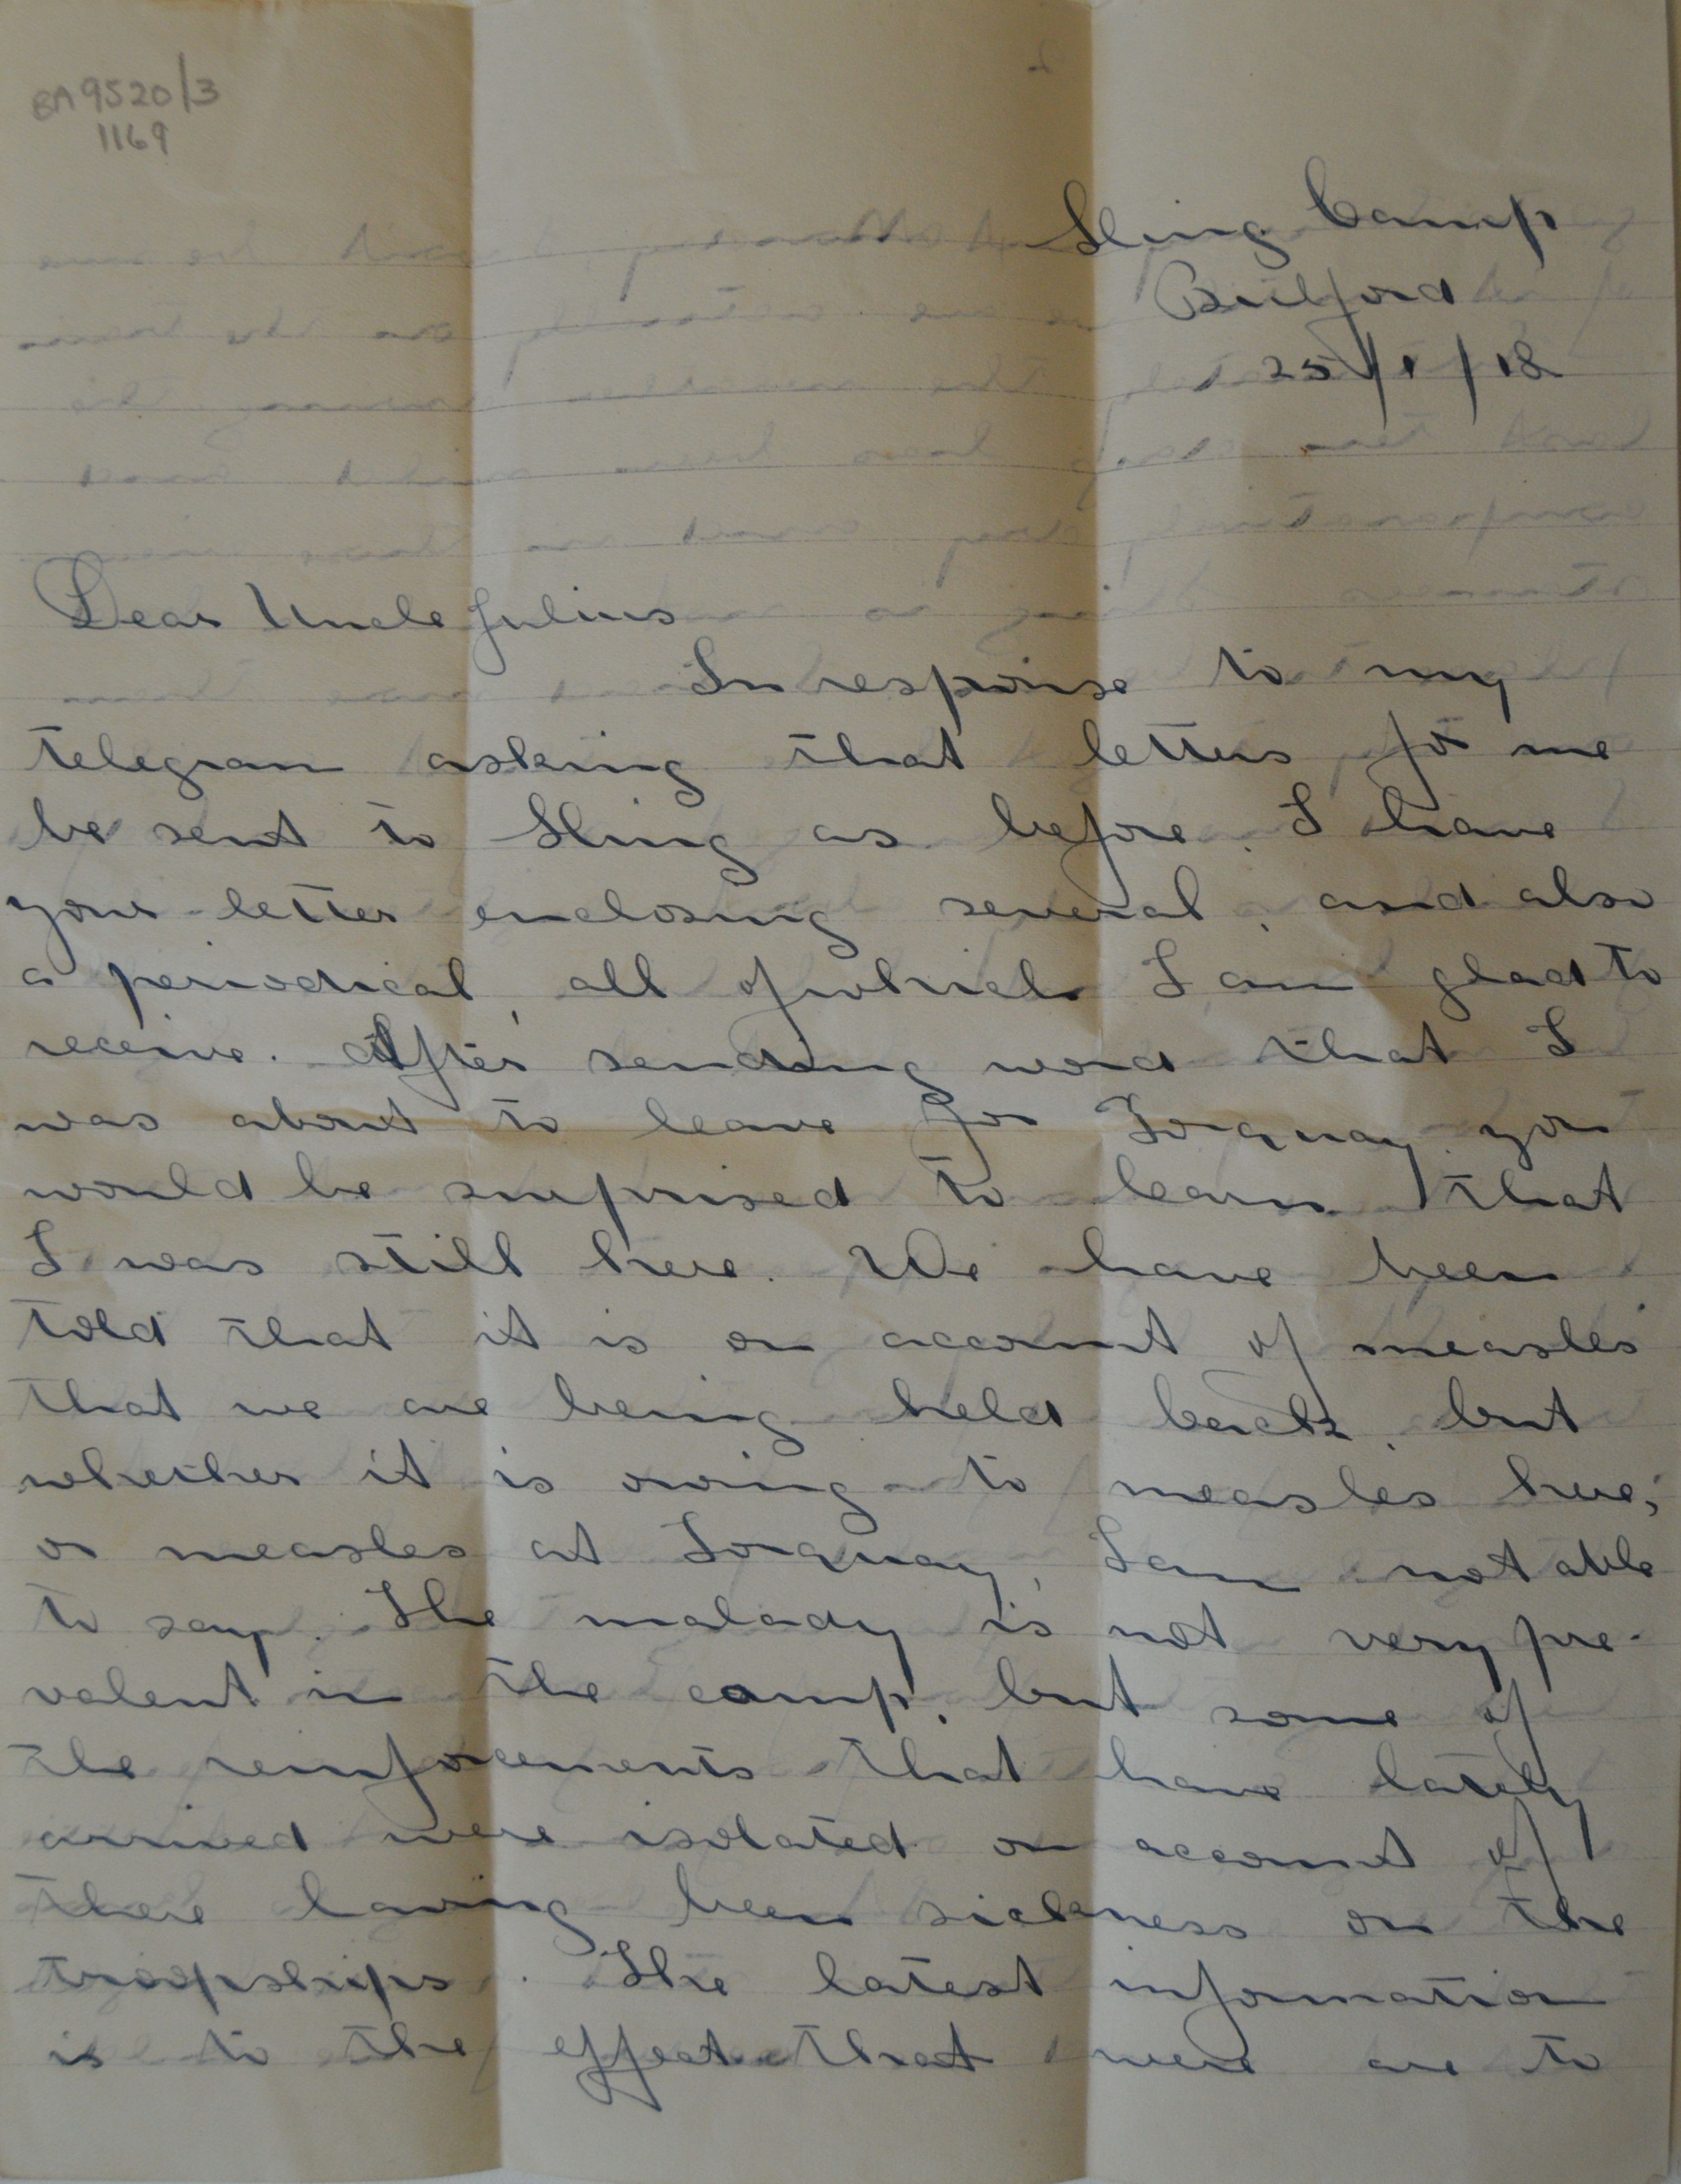 BA9520/3
1169
Sling Camp
Bulford
25/1/18
Dear Uncle Julius
In response to my
telegram asking that letters for me
be sent to Sling as before, I have
your letter enclosing several, and also
a periodical, all of which I am glad to
receive. After sending word that I
was about to leave for Torquay you
would be surprised to learn that
I was still here. We have been
told that it is on account of measles
that we are being held back, but
whether it is owing to measles here,
or measles at Torquay, I am not able
to say. The malady is not very pre-
valent in the camp, but some of
the reinforcements that have lately
arrived were isolated on account of
there having been sickness on the
troopships. The latest information
is to the effect that were are to